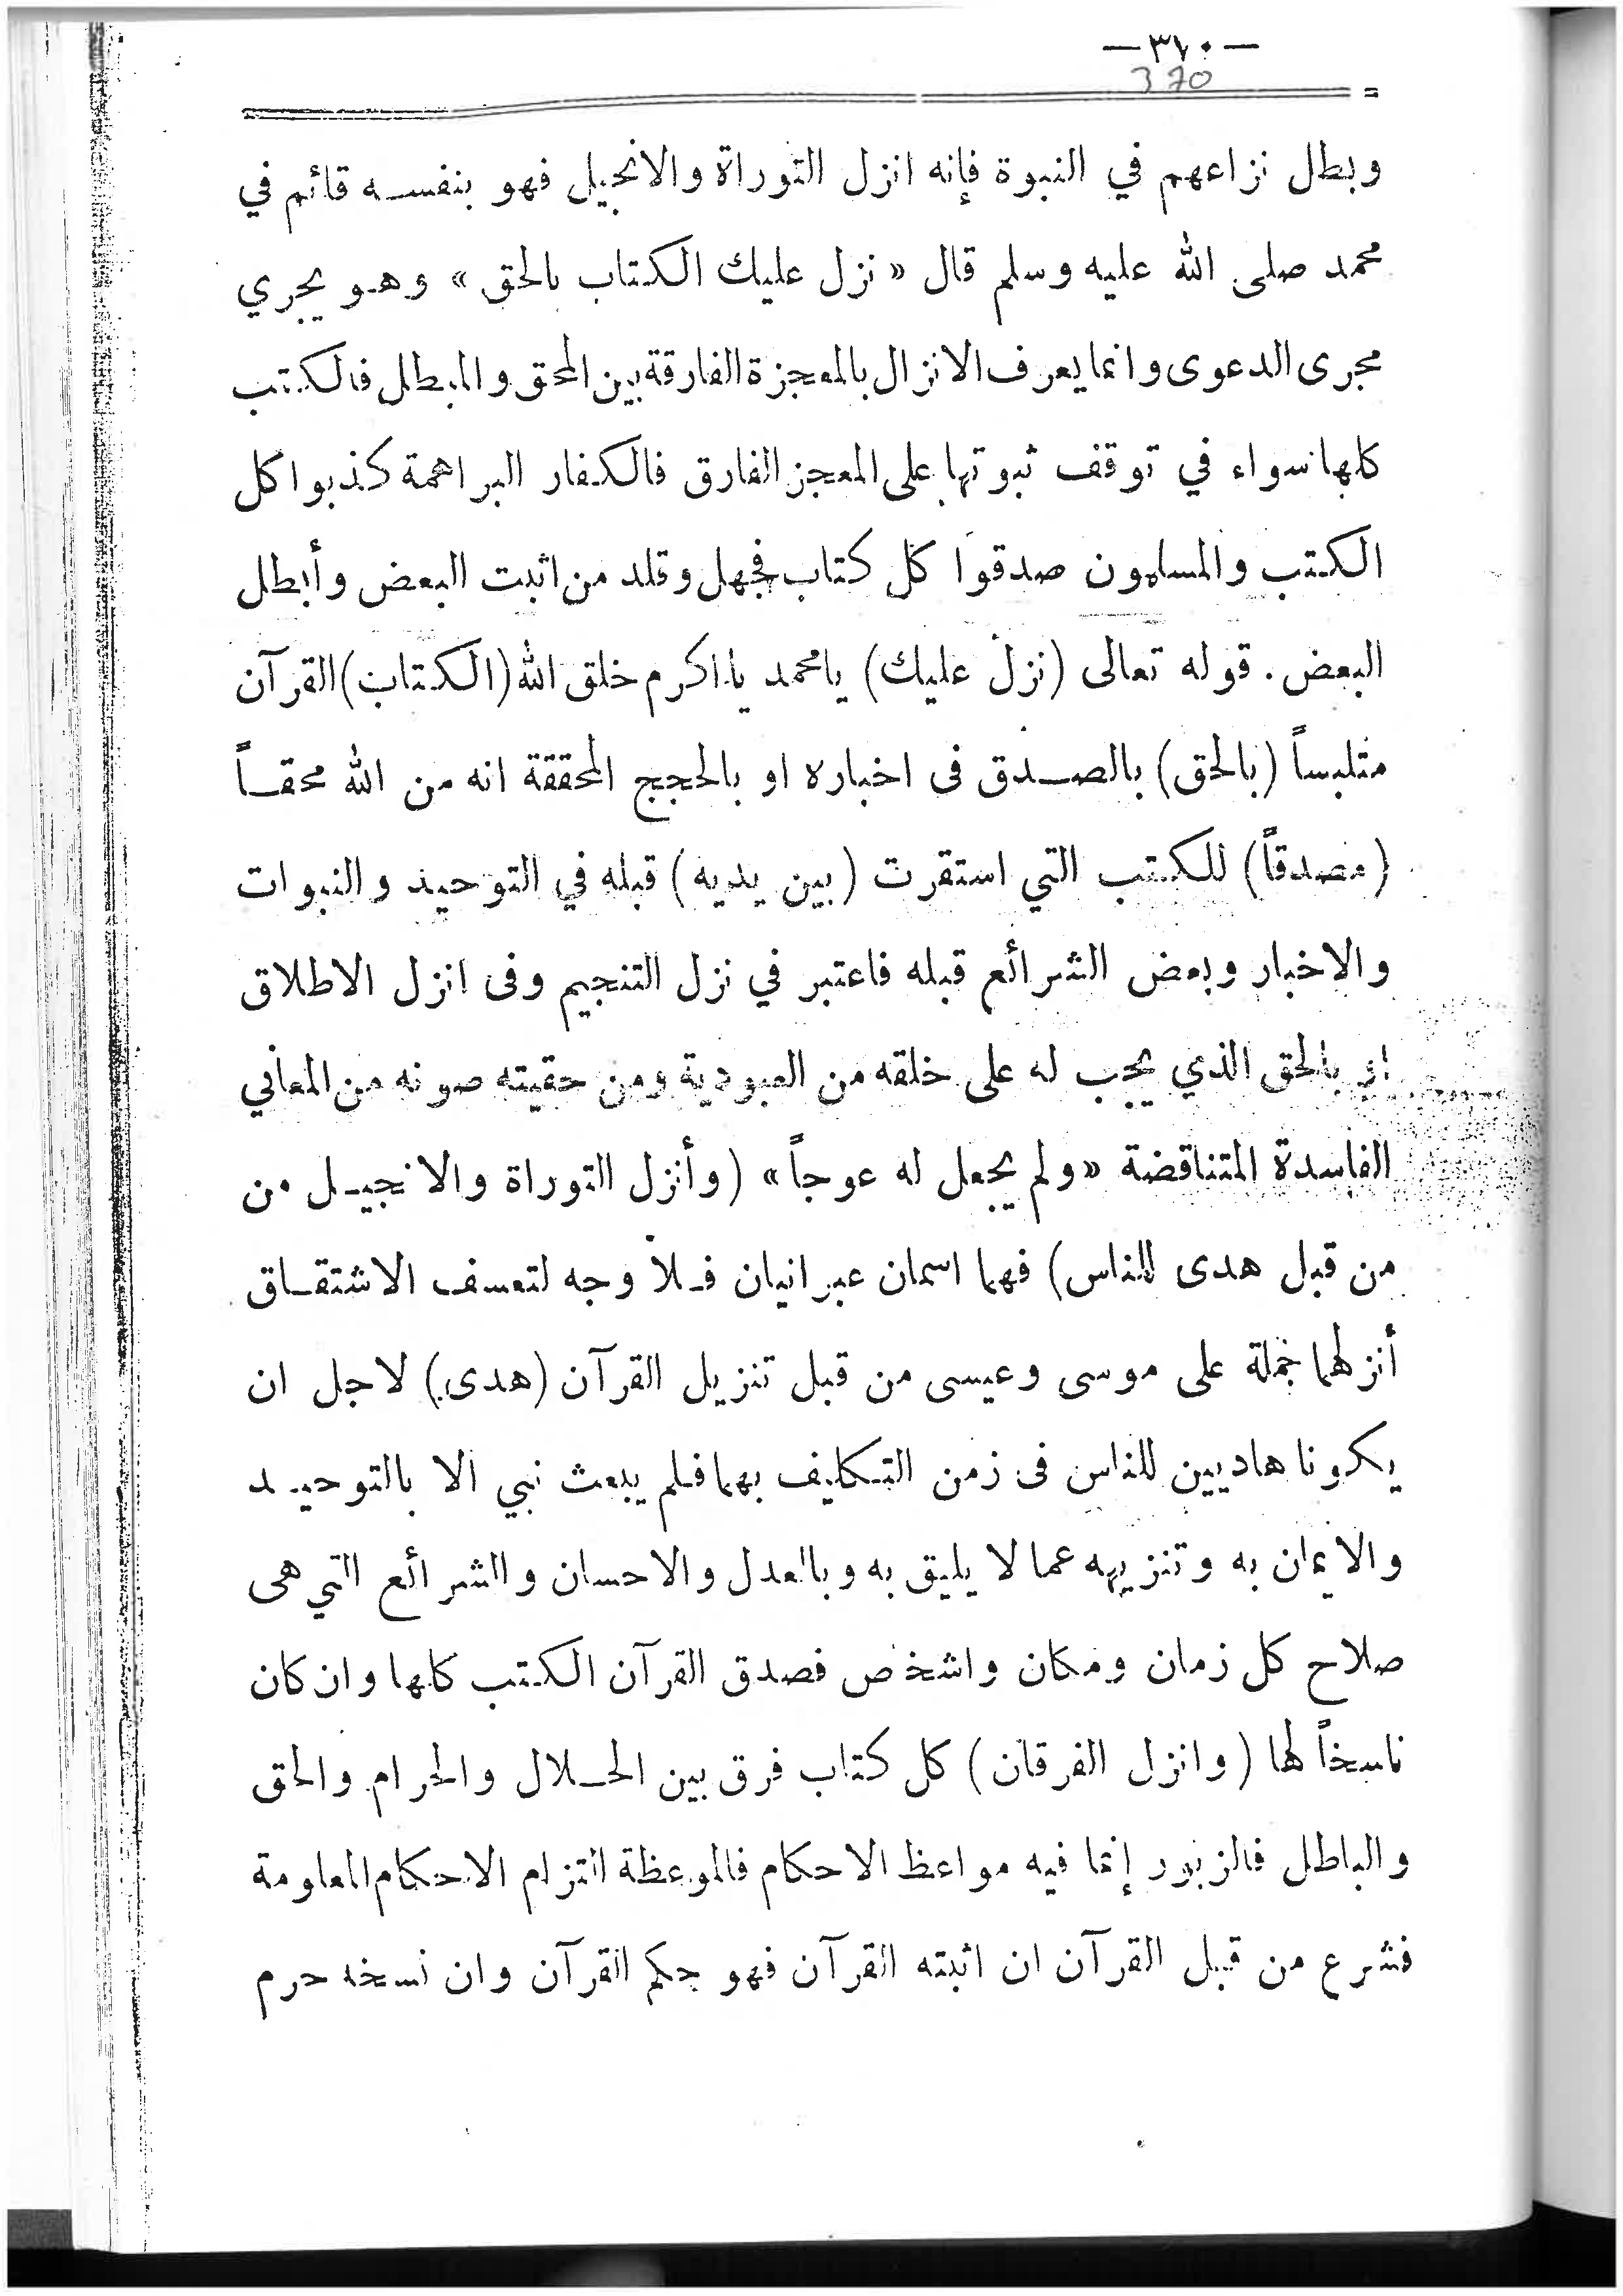 — ٣٧٠ —
370
وبطل نزاعهم في النبوة فإنه انزل التوراة والانجيل فهو بنفسه قائم في
محمد صلى الله عليه وسلم قال « نزل عليك الكتاب بالحق » وهو يجري
مجرى الدعوى وانما يعرف الانزال بالمعجزة الفارقة بين المحق والمبطل فالكتب
كلها سواء في توقف ثبوتها على المعجز الفارق فالكفار البراهمة كذبوا كل
الكتب والمسلمون صدقوا كل كتاب فجهل وقلد من اثبت البعض وأبطل
البعض . قوله تعالى (نزل عليك) يا محمد يا اكرم خلق الله (الكتاب) القرآن
متلبساً (بالحق) بالصدق فى اخباره او بالحجج المحققة انه من الله محقاً
(مصدقاً) للكتب التي استقرت (بين يديه) قبله في التوحيد والنبوات
والاخبار وبعض الشرائع قبله فاعتبر في نزل التنجيم وفى انزل الاطلاق
اي بالحق الذي يجب له على خلقه من العبودية ومن حقيته صونه من المعاني
الفاسدة المتناقضة « ولم يجعل له عوجاً » (وأنزل التوراة والانجيل من
من قبل هدى للناس) فهما اسمان عبرانيان فلا وجه لتعسف الاشتقاق
أنزلهما جملة على موسى وعيسى من قبل تنزيل القرآن (هدى) لاجل ان
يكونا هاديين للناس فى زمن التكليف بهما فلم يبعث نبي الا بالتوحيد
والايمان به وتنزيهه عما لا يليق به وبالعدل والاحسان والشرائع التي هى
صلاح كل زمان ومكان واشخاص فصدق القرآن الكتب كلها وان كان
ناسخاً لها (وانزل الفرقان) كل كتاب فرق بين الحلال والحرام والحق
والباطل فالزبور إنما فيه مواعظ الاحكام فالموعظة التزام الاحكام المعلومة
فشرع من قبل القرآن ان اثبته القرآن فهو حكم القرآن وان نسخه حرم